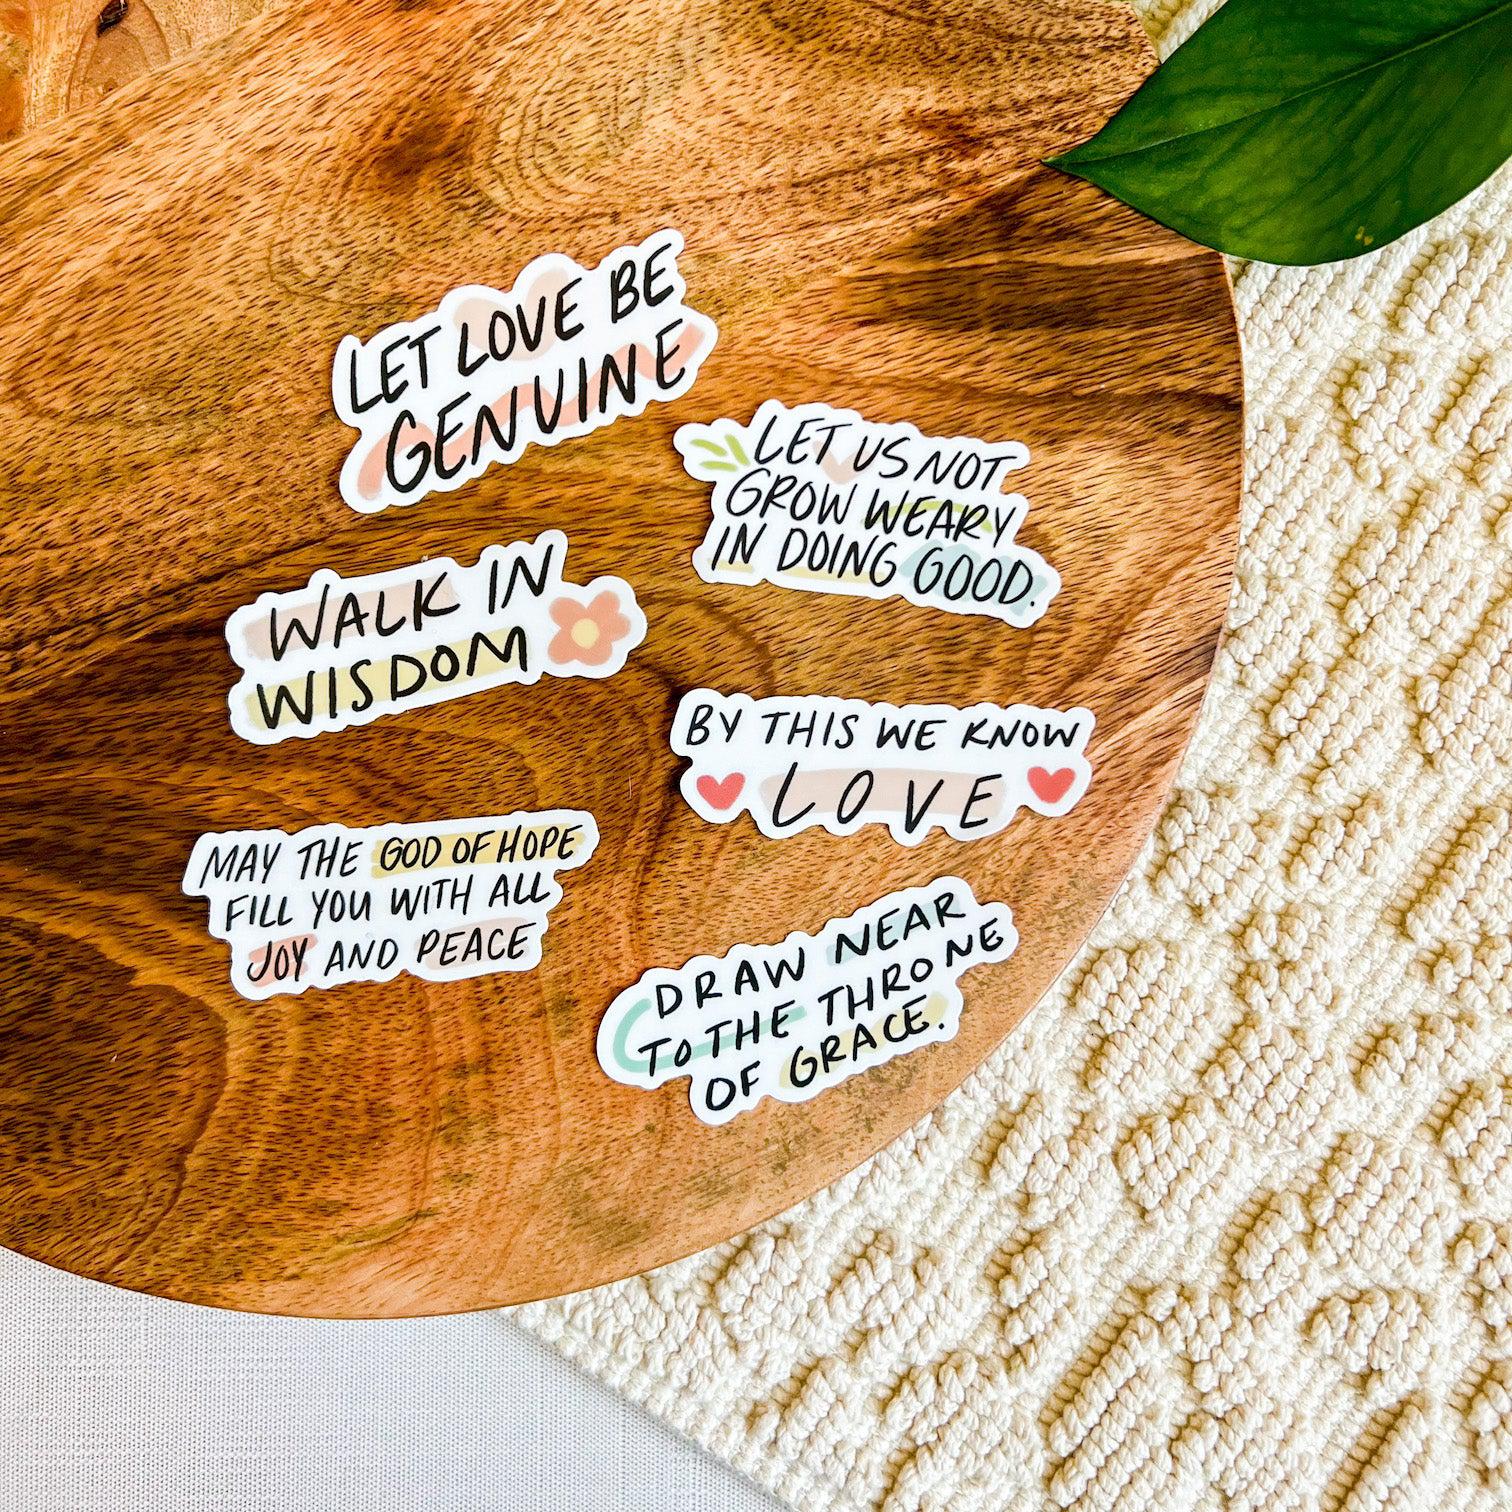 LET LOVE BE
GENUINE
LET US NOT
GROW WEARY
IN DOING GOOD.
WALK IN
WISDOM
BY THIS WE KNOW
LOVE
MAY THE GOD OF HOPE
FILL YOU WITH ALL
JOY AND PEACE
DRAW NEAR
TO THE THRONE
OF GRACE.